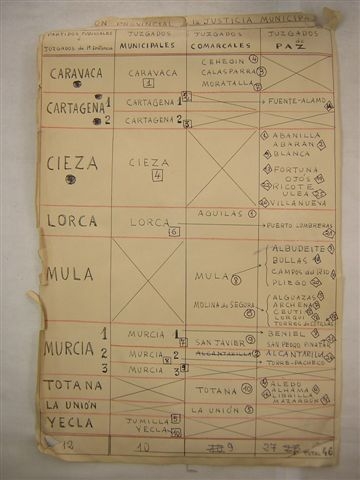 ON PROVINCIAL JUSTICIA MUNICIPA
PARTIDOS JUDICIALES
JUZGADOS DE 1ª INSTANCIA
JUZGADOS
MUNICIPALES
JUZGADOS
COMARCALES
JUZGADOS
DE
PAZ
CARAVACA
CARAVACA
1
CEHEGIN 4
CALASPARRA 3
MORATALLA 7
CARTAGENA 1
2
CARTAGENA 1
CARTAGENA 2
3
FUENTE-ALAMO
CIEZA
CIEZA
4
ABANILLA
ABARÁN
BLANCA
FORTUNA
OJÓS
RICOTE
ULEA
VILLANUEVA
LORCA
LORCA
6
AGUILAS 1
PUERTO LUMBRERAS
MULA
MULA
MOLINA DE SEGURA
ALBUDEITE
BULLAS
CAMPOS DEL RIO
PLIEGO
ALGUAZAS
ARCHENA
CEUTI
LORQUI
TORRES DE COTILLAS
MURCIA 1
2
3
MURCIA 1
MURCIA 2
MURCIA 3
SAN JAVIER
ALCANTARILLA
BENIEL
SAN PEDRO PINATAR
ALCANTARILLA
TORRE-PACHECO
TOTANA
TOTANA 10
ALEDO
ALHAMA
LIBRILLA
MAZARRÓN
LA UNIÓN
LA UNIÓN 5
YECLA
JUMILLA
YECLA
12
10
9
27
TOTAL 46